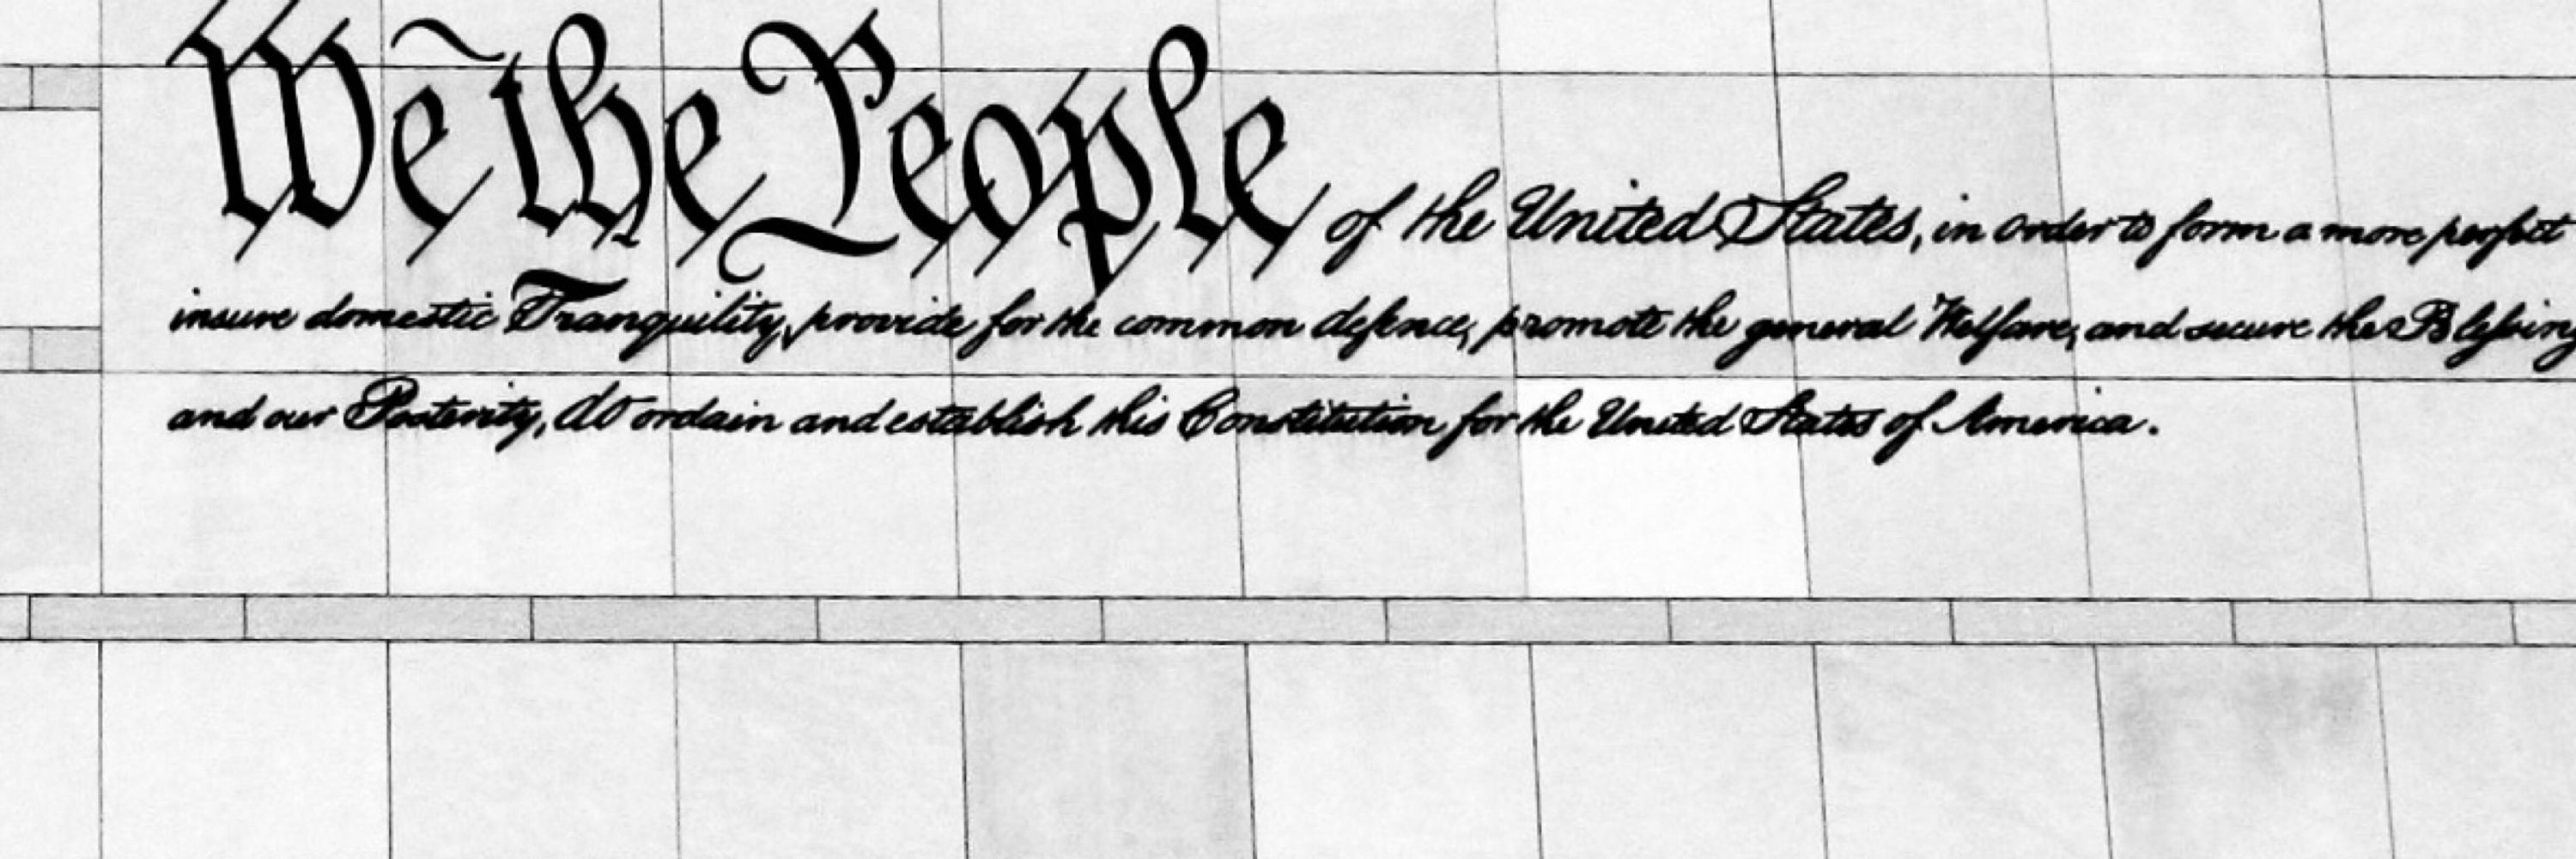 We the People of the United States, in Order to form a more perfect
insure domestic Tranquility, provide for the common defence, promote the general Welfare, and secure the Blessing
and our Posterity, do ordain and establish this Constitution for the United States of America.